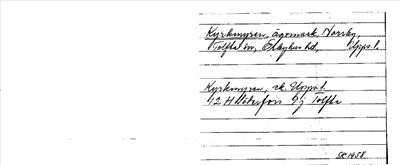 Kyrkmyren, ägomark, Norrby,
Tolfta sn, Örbyhus hd, Upps. l.
Kyrkmyren, ek Uppm.
12 H Söderfors 9j Tolfta
SK 1958